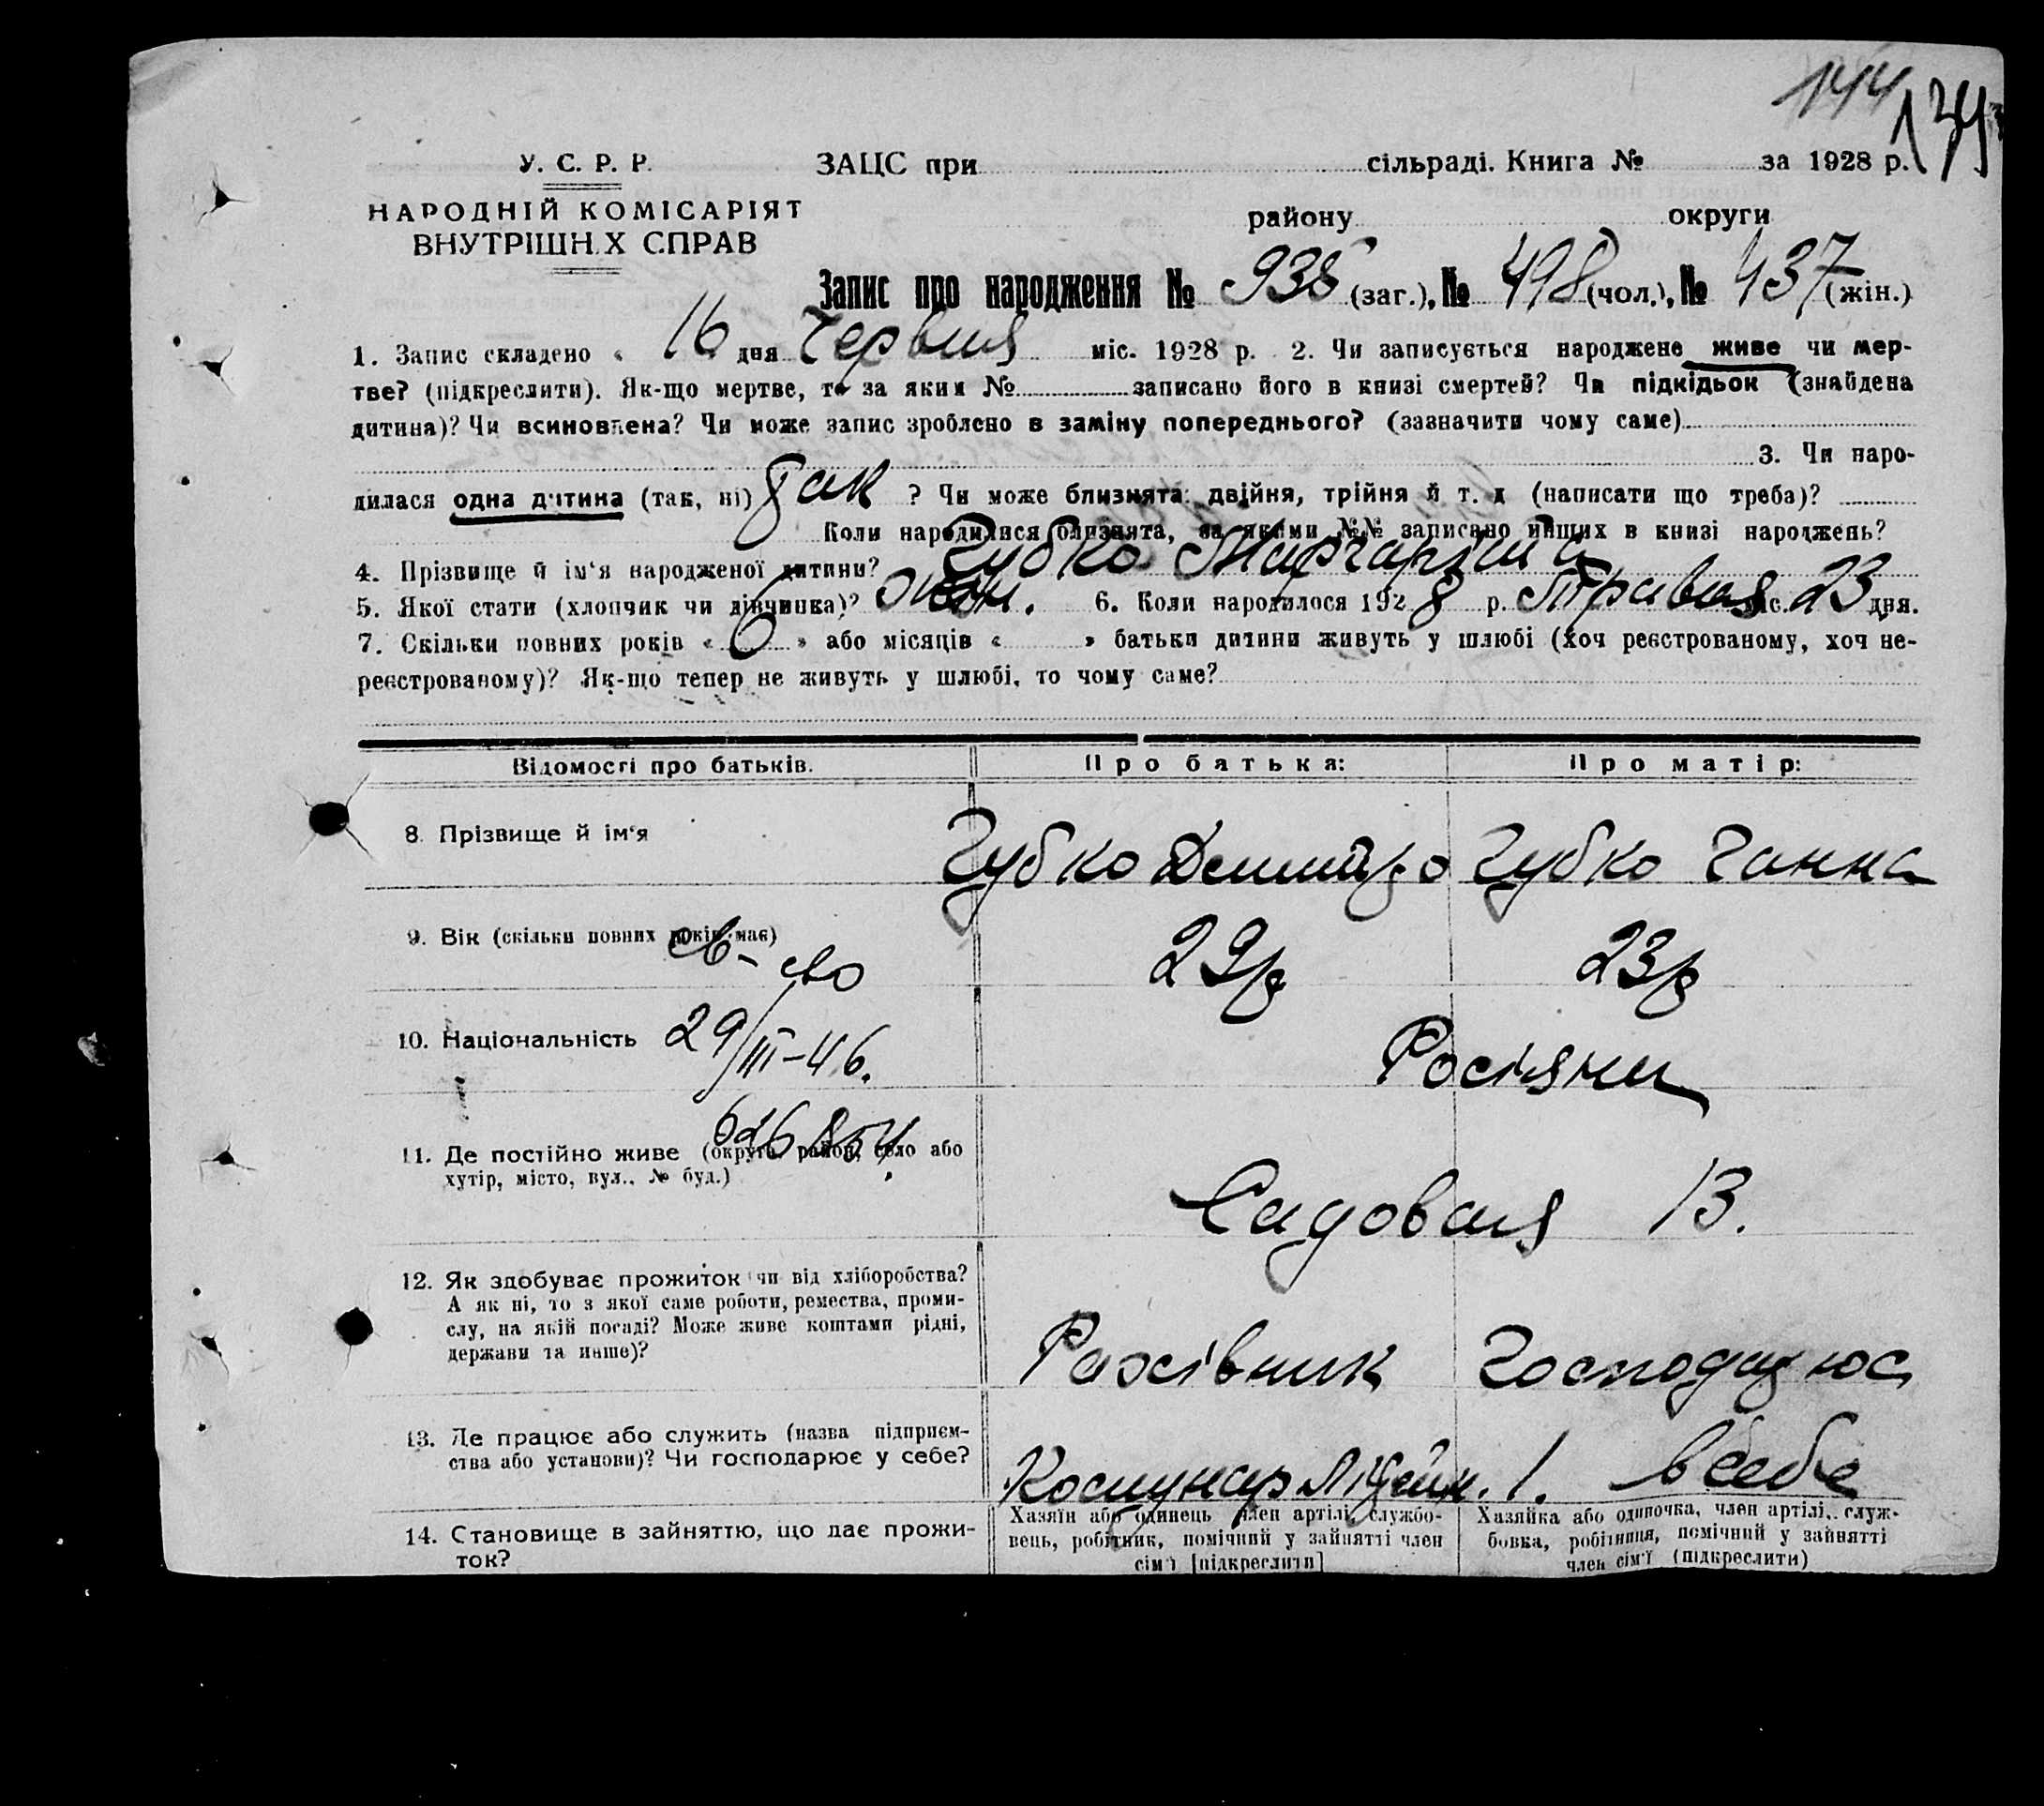 144 134
У. С. Р. Р. ЗАЦС при сільраді. Книга № за 1928 р.
НАРОДНІЙ КОМІСАРІЯТ району округи
ВНУТРІШН.Х СПРАВ
Запис про народження № 935 (заг.), № 498 (чол.), № 437 (жін.)
1. Запис складено « 16 дня Червня міс. 1928 р. 2. Чи записується народжене живе чи мер-
тве? (підкреслити). Як-що мертве, то за яким № записано його в книзі смертей? Чи підкідьок (знайдена
дитина)? Чи всиновлена? Чи може запис зроблено в заміну попереднього? (зазначити чому саме)
3. Чи наро-
дилася одна дитина (так, ні) Так ? Чи може близнята: двійня, трійня й т. д (написати що треба)?
Коли народилися близнята, за якими №№ записано инших в книзі народжень?
4. Прізвище й ім'я народженої дитини? Губко Маргарита
5. Якої стати (хлопчик чи дівчинка)? жін. 6. Коли народилося 1928 р. Травня міс. 23 дня.
7. Скільки повних років « 6 » або місяців « » батьки дитини живуть у шлюбі (хоч реєстрованому, хоч не-
реєстрованому)? Як-що тепер не живуть у шлюбі, то чому саме?
Відомості про батьків. Про батька: Про матір:
8. Прізвище й ім'я Губко Дмитро Губко Ганна
9. Вік (скільки повних років має) 29р 23р
св-во
10. Національність 29/III-46. Росіяни
11. Де постійно живе (округа, район, село або
хутір, місто, вул., № буд.)
Садовая 13.
12. Як здобуває прожиток чи від хліборобства?
А як ні, то з якої саме роботи, ремества, проми-
слу, на якій посаді? Може живе коштами рідні,
держави та инше)?
Рахівник Господарює
13. Де працює або служить (назва підприєм-
ства або установи)? Чи господарює у себе?
Комунар 1. в себе
14. Становище в зайняттю, що дає прожи-
ток?
Хазяїн або одинець член артілі, службо-
вець, робітник, помічний у зайнятті член
сім'ї [підкреслити]
Хазяйка або одиночка, член артілі, служ-
бовка, робітниця, помічний у зайнятті
член сім'ї (підкреслити)